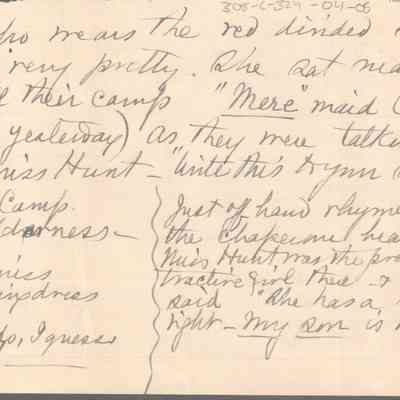 308-6-324-04-08
who wears the red divided
very pretty. She sat nea
their camp "Mere" maid
yesterday) as they were talki
Miss Hunt - "Write this Hymn
Camp.
derness -
ness
indress
do, I guess
Just off hand rhyme
the Chaperone hea
Miss Hunt was the pre
tractive girl there - &
said "She has a
right - My son is